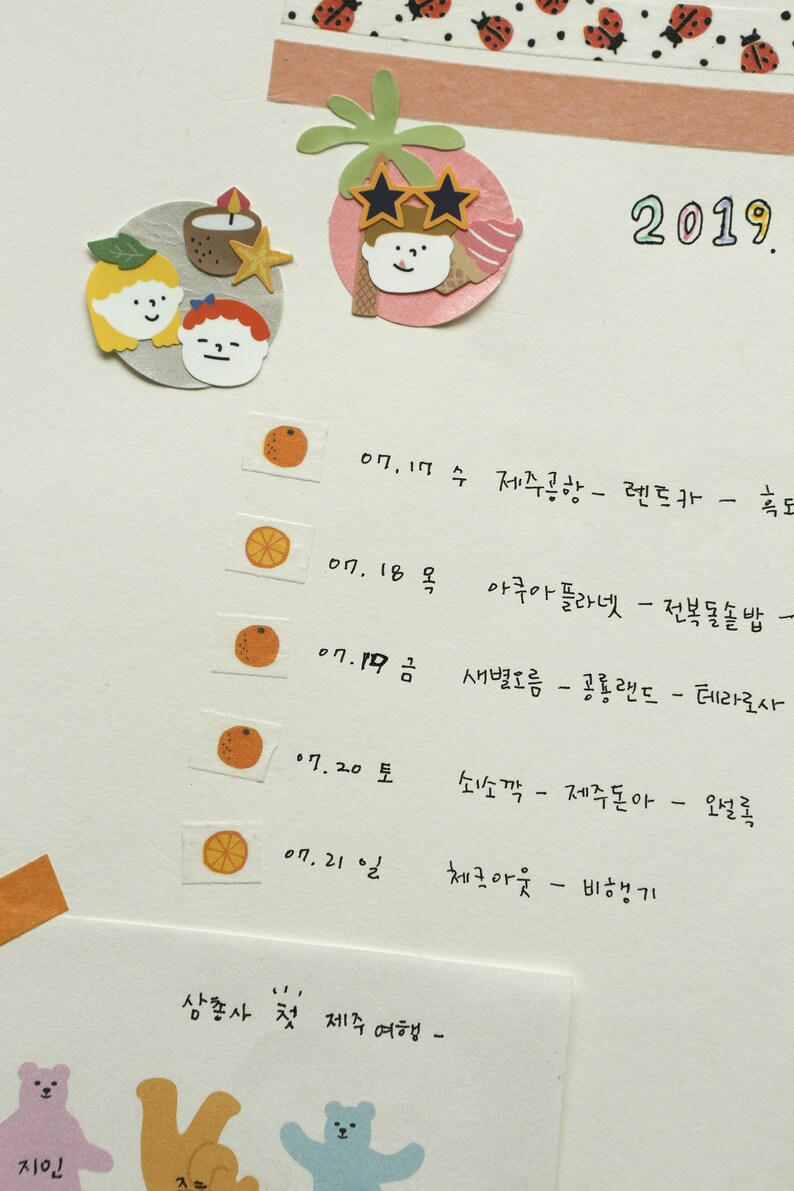 2019.
07.17 수 제주공항 - 렌트카 - 흑도
07.18 목 아쿠아플라넷 - 전복돌솥밥 -
07.19 금 새별오름 - 공룡랜드 - 테라로사
07.20 토 쇠소깍 - 제주돈아 - 오설록
07.21 일 체크아웃 - 비행기
삼총사 첫 제주 여행 -
지인